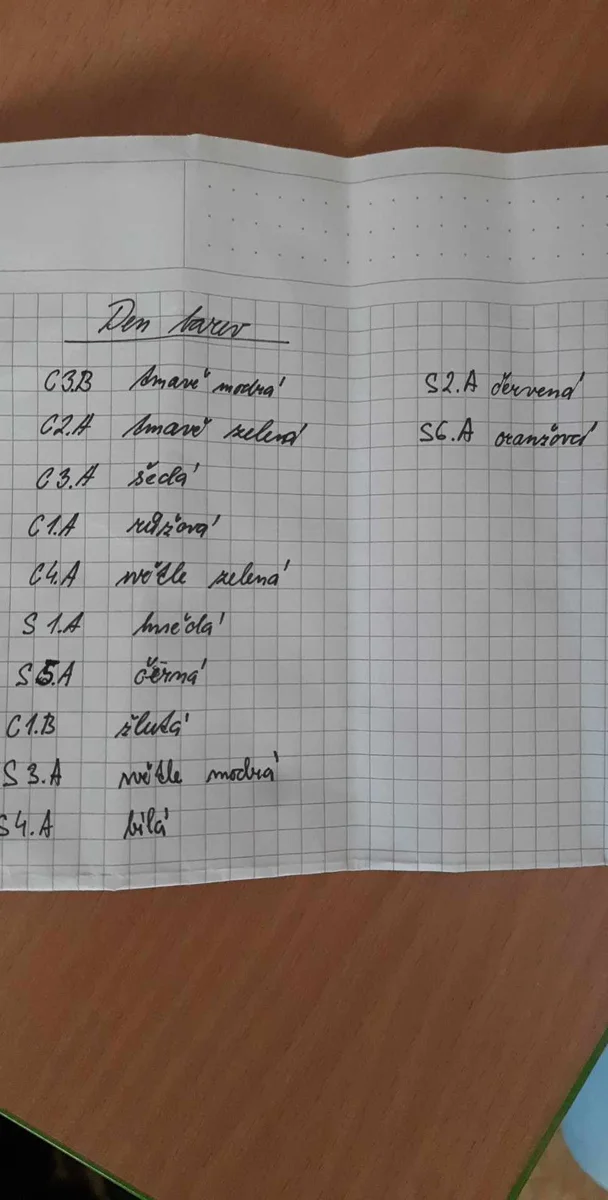 Den barev
C3.B tmavě modrá
C2.A tmavě zelená
C3.A šedá
C1.A růžová
C4.A světle zelená
S1.A hnědá
S5.A černá
C1.B žlutá
S3.A světle modrá
S4.A bílá
S2.A červená
S6.A oranžová